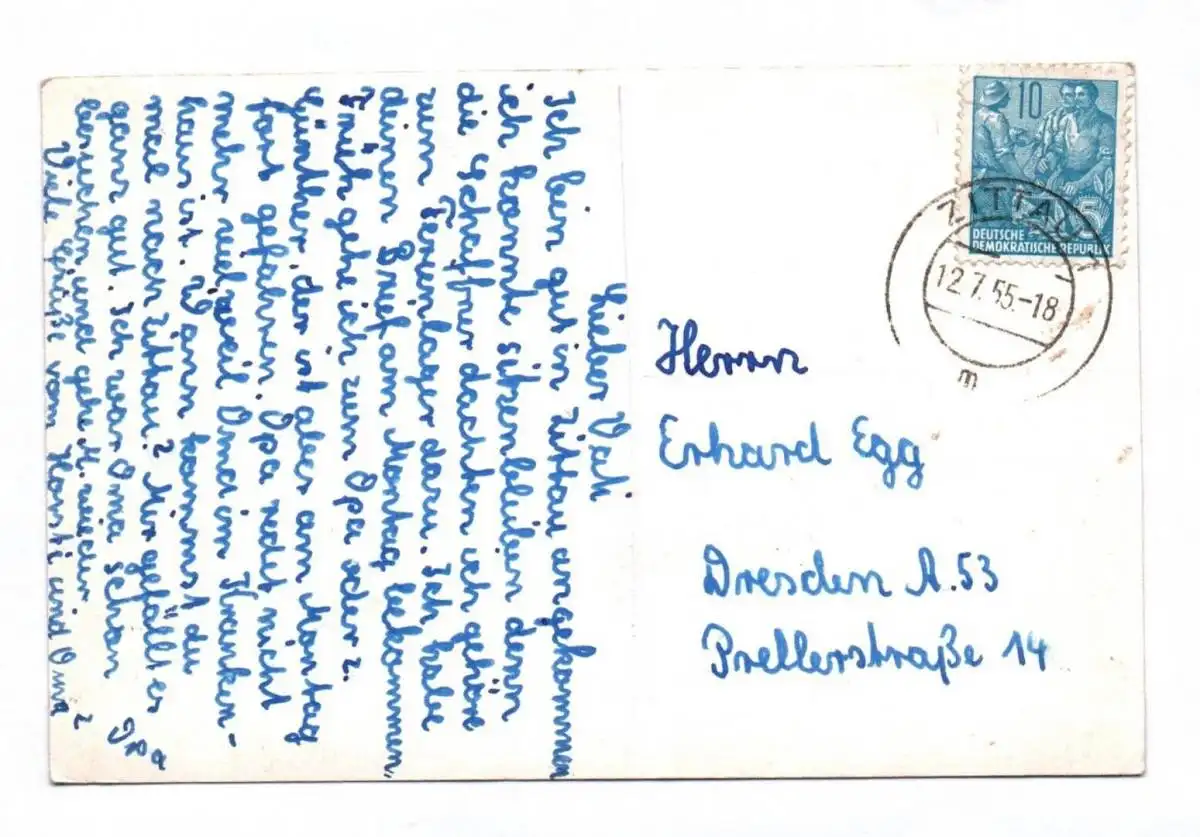 Lieber Vati
Ich bin gut in Zittau angekommen
ich konnte sitzenbleiben denn
die Schaffner dachten ich gehöre
zum Ferienlager dazu. Ich habe
deinen Brief am Montag bekommen.
Früh gehe ich zum Opa oder z.
Günther, der ist aber am Montag
fort gefahren. Opa redet nicht
mehr viel weil Oma im Kranken-
haus ist. Wann kommst du
mal nach Zittau? Mir gefällt es
ganz gut. Ich war Oma schon
besuchen und gehe M. wieder
Viele Grüße vom Horsti und Oma
Opa
10
DEUTSCHE
DEMOKRATISCHE REPUBLIK
ZITTAU
12.7.55-18
m
Herrn
Erhard Egg
Dresden A.53
Prellerstraße 14